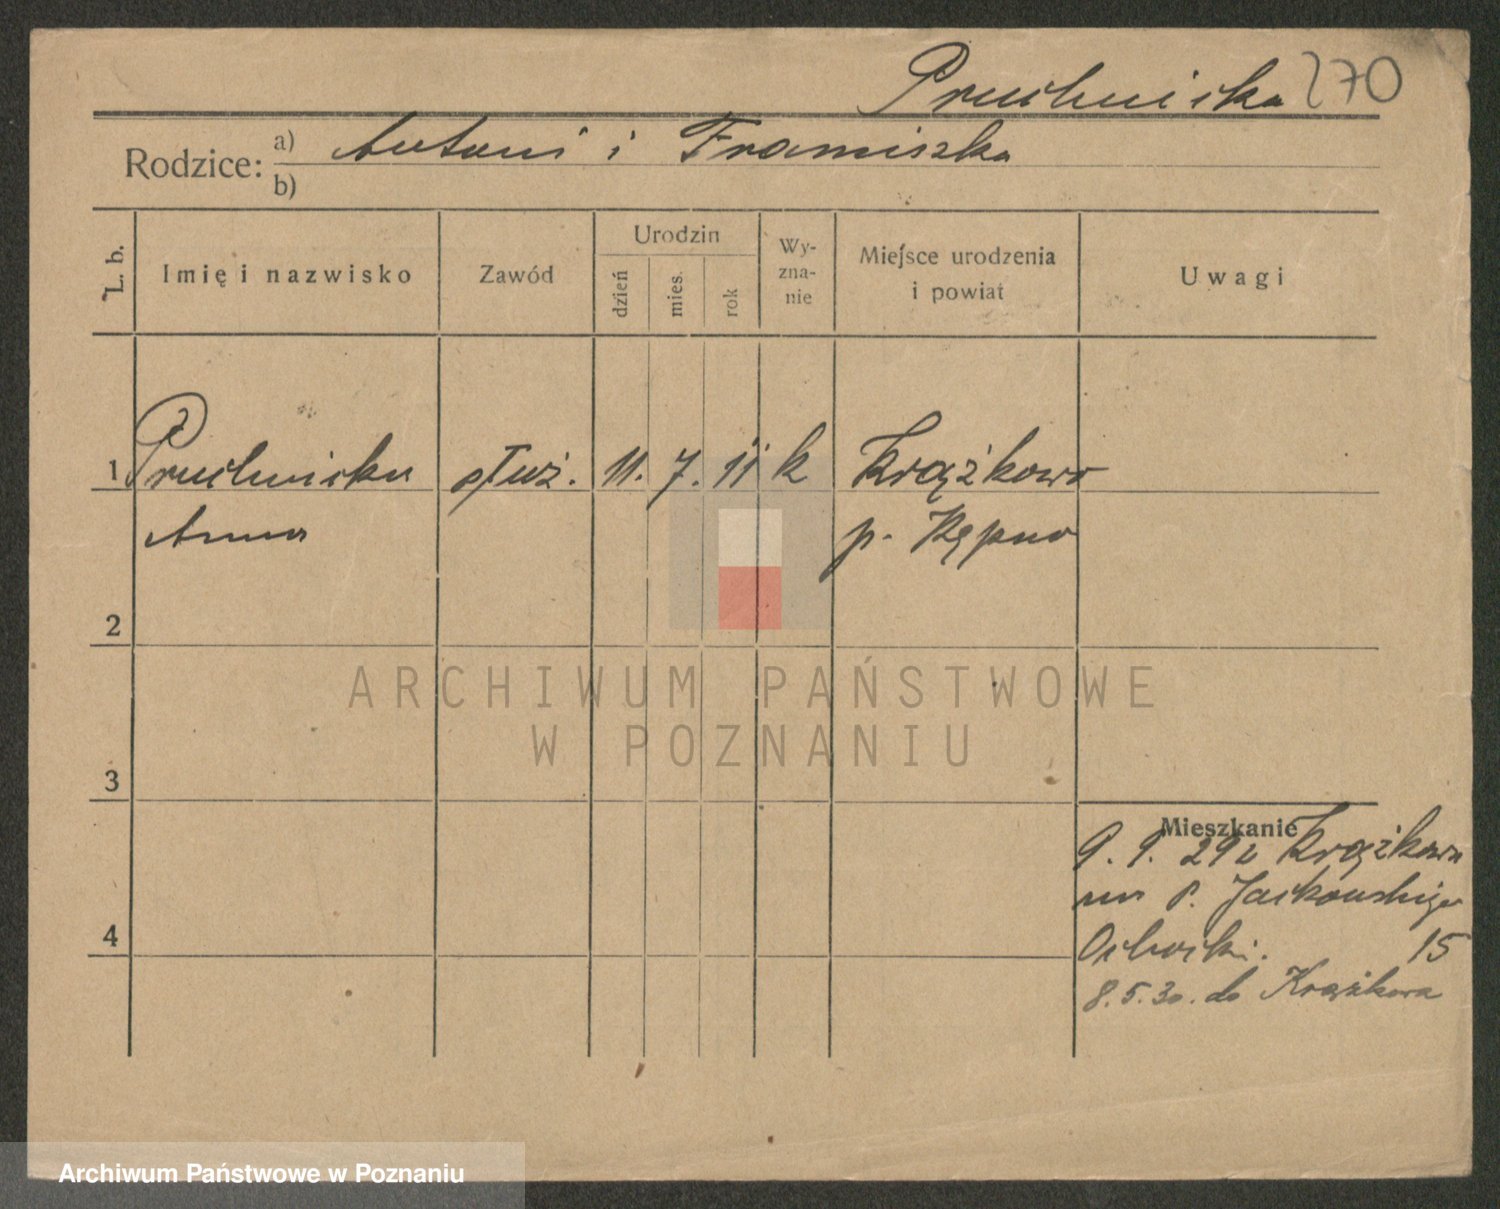 Pruchnicka 270
Rodzice: a) Antoni i Franciszka
b)
L. b.
Imię i nazwisko
Zawód
Urodzin
dzień
mies.
rok
Wy-
zna-
nie
Miejsce urodzenia
i powiat
Uwagi
1 Pruchnicka służ. 11. 7. 11 k Krążkowo
Anna p. Kępno
2
3
4
Mieszkanie
9. 9. 29 z Krążkowa
na P. Jackowskiego
15
8.5.30. do Krążkowa
ARCHIWUM PAŃSTWOWE
W POZNANIU
Archiwum Państwowe w Poznaniu